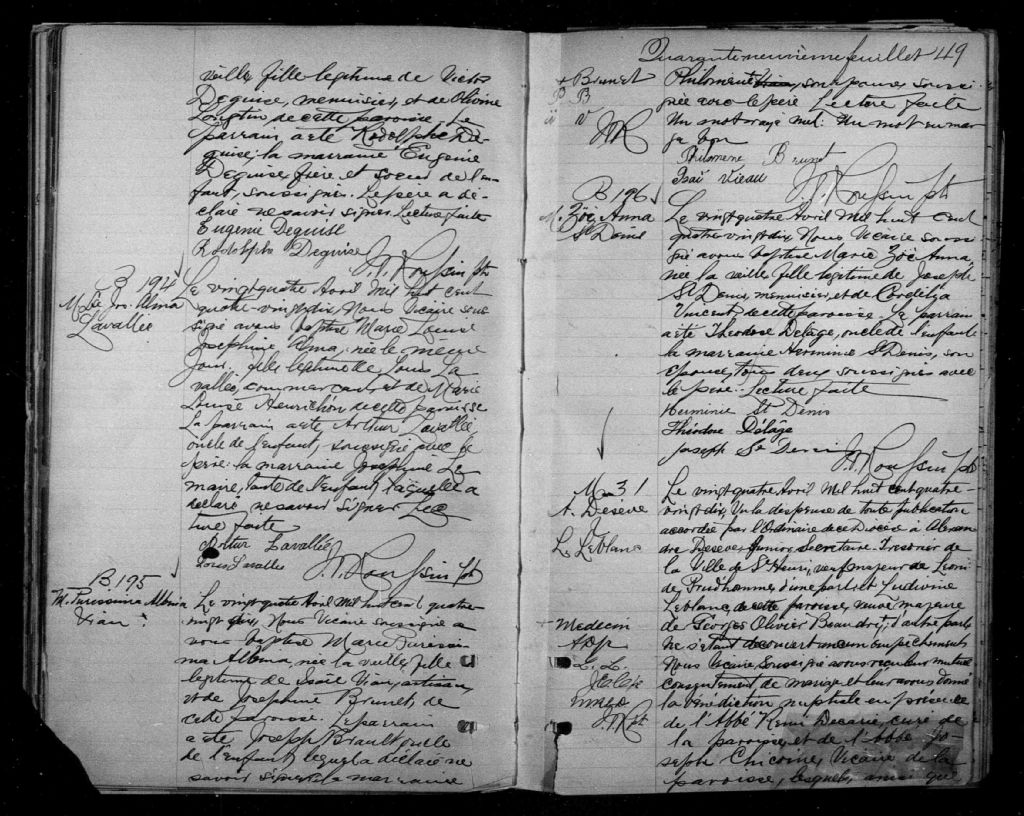 veille, fille legitime de Victor
Deguise, menuisier, et de Olivine
de cette paroisse. Le
parrain a été Rodolphe De-
guise; la marraine Eugenie
Deguise frère et soeur de l'en-
fant, soussignés. Le père a dé-
claré ne savoir signer. Lecture faite
Eugenie Deguise
Rodolphe Deguise
B 194
Lavallée
Le vingtquatre Avril Mil huit cent
quatre-vingtdix, Nous Vicaire sous-
signé avons baptisé Marie Louise
Josephine Alma, née le même
jour, fille legitime de Louis La-
vallée, commercant et de Marie
Louise Henrichon de cette paroisse
Le parrain a été Arthur Lavallée,
oncle de l'enfant, soussigné avec le
père: la marraine Josephine Le-
maire, tante de l'enfant laquelle a
declaré ne savoir signer Lec-
ture faite
Arthur Lavallée
Louis Lavallée
B 195
M. Purissima Albina
Viau
Le vingtquatre Avril Mil huit cent quatre-
vingt dix, Nous Vicaire soussigné a-
vons baptisé Marie Purissi-
ma Albina, née la veille, fille
legitime de Isaïe Viau, artisan,
et de Josephine Brunet, de
cette paroisse. Le parrain
a été Joseph Brault oncle
de l'enfant lequel a déclaré ne
savoir signer, la marraine
Quarante neuvième feuillet 49
+ Brunet
B B
V
Philomène Viau, son epouse, soussi-
gnée avec le père Lecture faite
Un mot rayé nul: Un mot en mar-
ge bon
Philomene Brunet
Isaï Vieau
B 196
M. Zöé Anna
St Denis
Le vingtquatre Avril Mil huit cent
quatre-vingtdix, Nous Vicaire soussi-
gné avons baptisé Marie Zöé Anna,
née la veille fille legitime de Joseph
St Denis, menuisier, et de Cordelya
Vincent de cette paroisse. Le parrain
a été Théodore Delâge, oncle de l'enfant
la marraine Herminie St Denis, son
épouse, tous deux soussignés avec
le père. Lecture faite
Herminie St Denis
Théodore Délâge
Joseph St Denis
M 31
A. Deseve
&
L. Leblanc
Le vingtquatre Avril Mil huit cent quatre-
vingt dix, Vu la dispense de toute publication
accordée par l'Ordinaire de ce Diocèse à Alexan-
dre Deseve, Junior, Secretaire-Tresorier de
la Ville de St Henri, veuf majeur de
Prudhomme, d'une part, et Ludivine
Leblanc, de cette paroisse, veuve majeure
de Georges Olivier Beaudry, d'autre part;
ne s'etant decouvert aucun empêchement
Nous Vicaire, soussigné avons reçu leur mutuel
consentement de mariage et leur avons donné
la bénédiction nuptiale en présence
de l'Abbé Rémi Decarie, curé de
la paroisse, et de l'abbé Jo-
seph Chicoine, Vicaire de la
paroisse, lesquels, ainsi que
+ Médecin